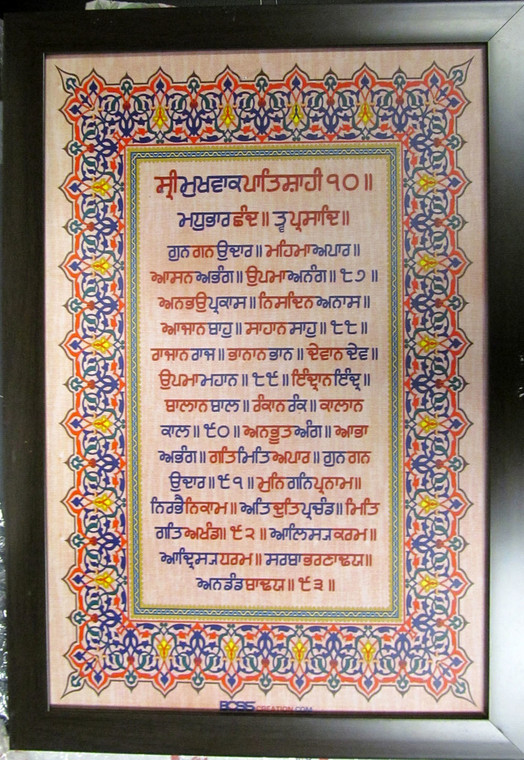 ਸ੍ਰੀ ਮੁਖਵਾਕ ਪਾਤਿਸ਼ਾਹੀ ੧੦॥
ਮਧੁਭਾਰ ਛੰਦ॥ ਤ੍ਵਪ੍ਰਸਾਦਿ॥
ਗੁਨ ਗਨ ਉਦਾਰ॥ ਮਹਿਮਾ ਅਪਾਰ॥
ਆਸਨ ਅਭੰਗ॥ ਉਪਮਾ ਅਨੰਗ॥ ੮੭॥
ਅਨਭਉ ਪ੍ਰਕਾਸ॥ ਨਿਸਦਿਨ ਅਨਾਸ॥
ਆਜਾਨ ਬਾਹੁ॥ ਸਾਹਾਨ ਸਾਹੁ॥ ੮੮॥
ਰਾਜਾਨ ਰਾਜ॥ ਭਾਨਾਨ ਭਾਨ॥ ਦੇਵਾਨ ਦੇਵ॥
ਉਪਮਾ ਮਹਾਨ॥ ੮੯॥ ਇੰਦ੍ਰਾਨ ਇੰਦ੍ਰ॥
ਬਾਲਾਨ ਬਾਲ॥ ਰੰਕਾਨ ਰੰਕ॥ ਕਾਲਾਨ
ਕਾਲ॥ ੯੦॥ ਅਨਭੂਤ ਅੰਗ॥ ਆਭਾ
ਅਭੰਗ॥ ਗਤਿ ਮਿਤਿ ਅਪਾਰ॥ ਗੁਨ ਗਨ
ਉਦਾਰ॥ ੯੧॥ ਮੁਨਿ ਗਨਿ ਪ੍ਰਨਾਮ॥
ਨਿਰਭੈ ਨਿਕਾਮ॥ ਅਤਿ ਦੁਤਿ ਪ੍ਰਚੰਡ॥ ਮਿਤਿ
ਗਤਿ ਅਖੰਡ॥ ੯੨॥ ਆਲਿਸ੍ਯ ਕਰਮ॥
ਆਦ੍ਰਿਸ੍ਯ ਧਰਮ॥ ਸਰਬਾ ਭਰਣਾਢਯ॥
ਅਨਡੰਡ ਬਾਢਯ॥ ੯੩॥
BOSS CREATION.COM